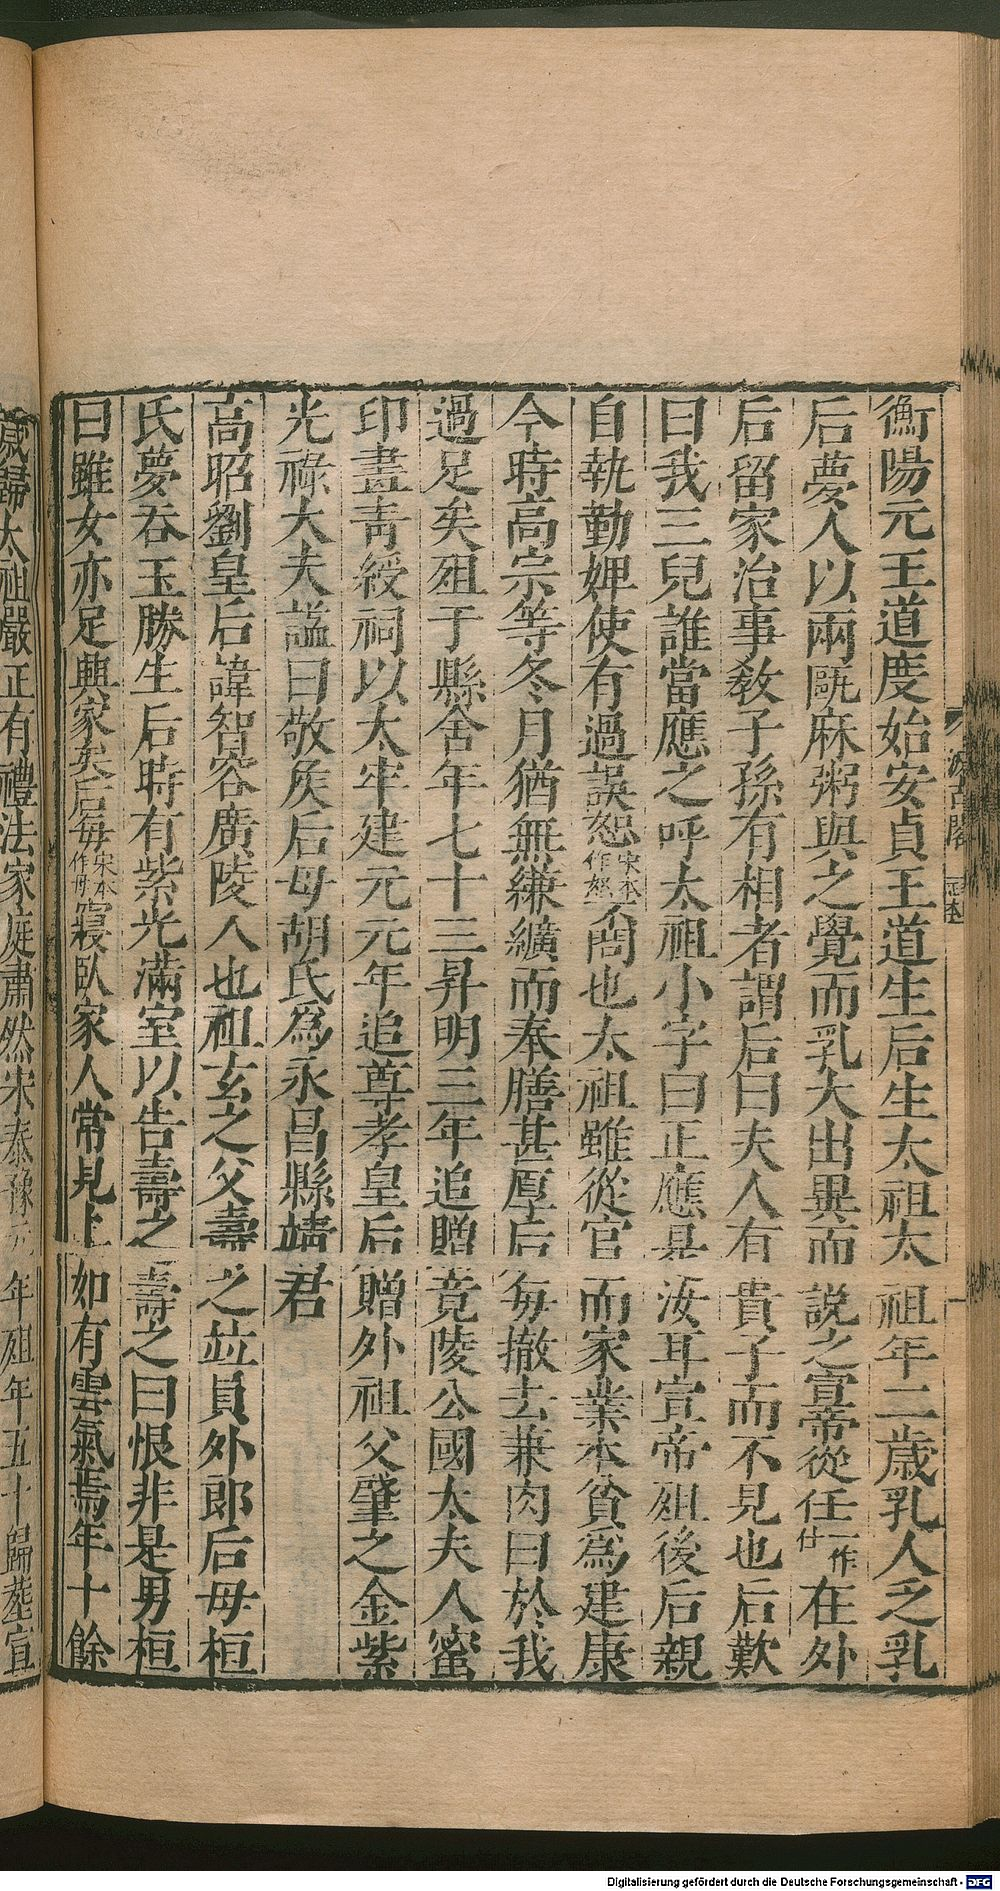 衡陽元王道度始安貞王道生后生太祖太祖年二歲乳人乏乳
后夢人以兩甌麻粥與之覺而乳大出異而說之宣帝從任一作仕在外
后留家治事敎子孫有相者謂后曰夫人有貴子而不見也后歎
曰我三兒誰當應之呼太祖小字曰正應是汝耳宣帝殂後后親
自執勤婢使有過誤恕宋本作怒不問也太祖雖從官而家業本貧爲建康
令時高宗等冬月猶無縑纊而奉膳甚厚后每撤去兼肉曰於我
過足矣殂于縣舍年七十三昇明三年追贈竟陵公國太夫人蜜
印畫靑綬祠以太牢建元元年追尊孝皇后贈外祖父肇之金紫
光祿大夫諡曰敬侯后母胡氏爲永昌縣靖君
高昭劉皇后諱智容廣陵人也祖玄之父壽之竝員外郎后母桓
氏夢吞玉勝生后時有紫光滿室以告壽之壽之曰恨非是男桓
曰雖女亦足興家矣后每宋本作母寢臥家人常見上如有雲氣焉年十餘
歲歸太祖嚴正有禮法家庭肅然宋泰豫元年殂年五十歸葬宣
汲古閣
Digitalisierung gefördert durch die Deutsche Forschungsgemeinschaft - DFG